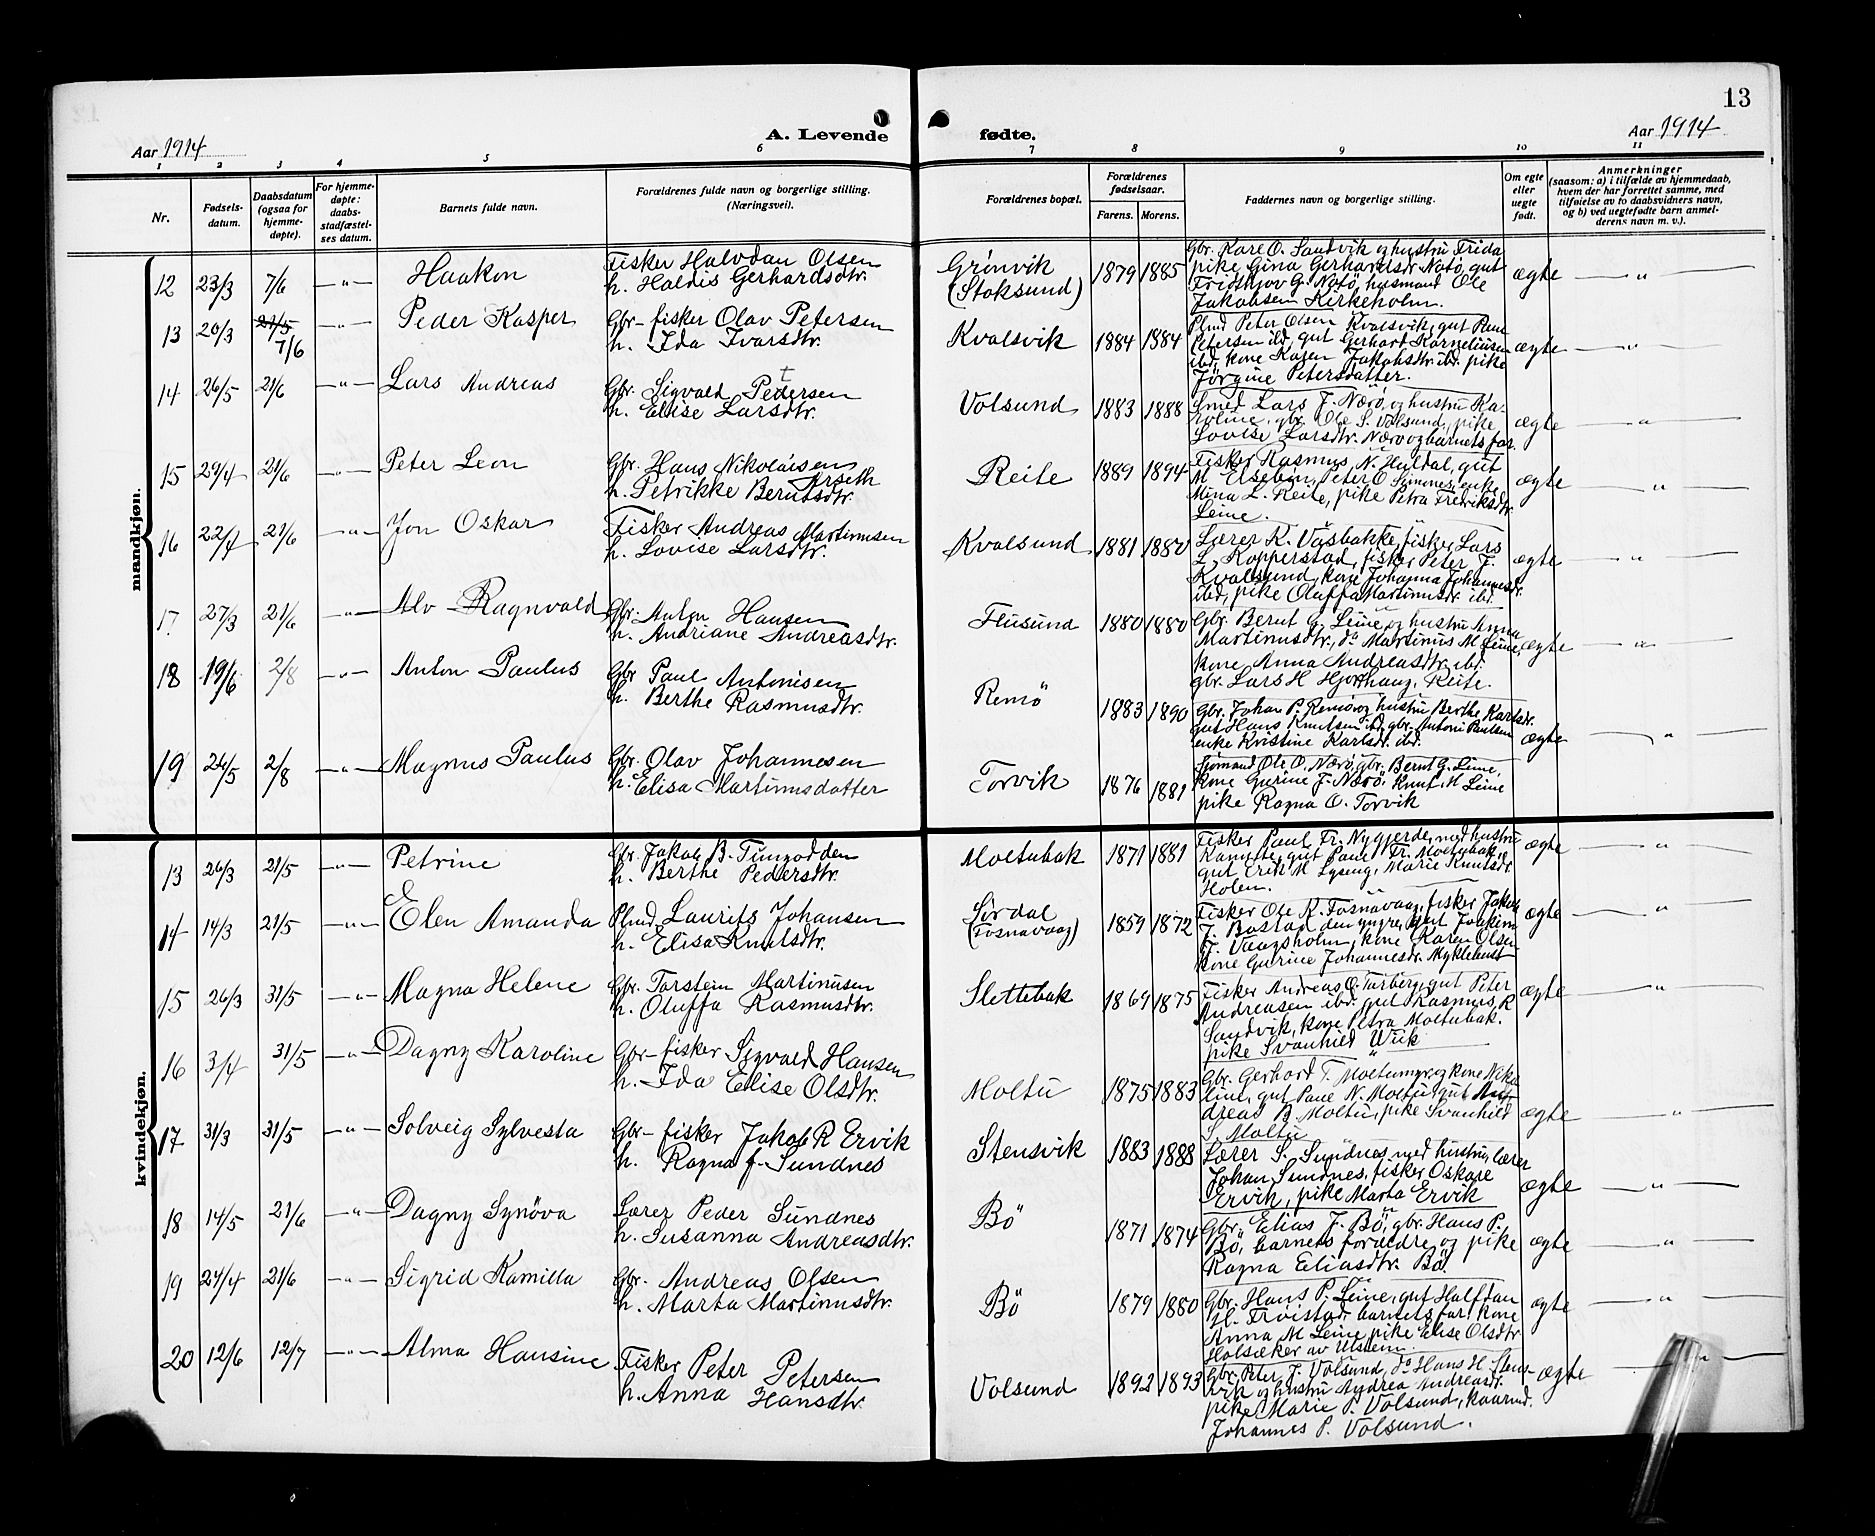 13
Aar 1914
A. Levende
fødte.
Aar 1914
1 2 3 4 5 6 7 8 9 10 11
Nr.
Fødsels-
datum.
Daabsdatum
(ogsaa for
hjemme-
døpte).
For hjemme-
døpte:
daabs-
stadfæstel-
ses datum.
Barnets fulde navn.
Forældrenes fulde navn og borgerlige stilling.
(Næringsvei).
Forældrenes bopæl.
Forældrenes
fødselsaar.
Farens. Morens.
Faddernes navn og borgerlige stilling.
Om egte
eller
uegte
født.
Anmerkninger
(saasom: a) i tilfælde av hjemmedaab,
hvem der har forrettet samme, med
tilføielse av to daabsvidners navn,
og b) ved uegtefødte barn anmel-
derens navn m. v.).
mandkjøn.
12 23/3 7/6 —"— Haakon
Fisker Halvdan Olsen
h. Haldis Gerhardsdtr.
Grönvik
(Stoksund)
1879 1885
Gbr. Kare O. Sandvik og hustru Frida
pike Gina Gerhardsdr. Notö, gut
Fridthjov G. Notö, husmand Ole
Jakobsen Kirkeholm.
ægte —"—
13 20/3 21/5
7/6
—"— Peder Kasper
Gbr- fisker Olav Petersen
h. Ida Ivarsdtr.
Kvalsvik
1884 1884
Plmd Peter Olsen Kvalsvik, gut Paul
Petersen ibd, gut Gerhard Korneliusen
ibd, kone Karen Jakobsdtr. ibd. pike
Jörgine Petersdatter.
ægte —"—
14 26/5 21/6 —"— Lars Andreas
Gbr. Sigvald Pedersen
t
h. Elise Larsdtr.
Volsund
1883 1888
Smed Lars J. Nærö, og hustru Ka-
roline, gbr. Ole S. Volsund, pike
Lovise Larsdtr. Nærö og barnets far.
ægte —"—
15 29/4 21/6 —"— Peter Leon
Gbr. Hans Nikolaisen
Årseth
h. Petrikke Berntsdtr.
Reite
1889 1894
Fisker Rasmus N. Huldal, gut
M Elsebön, Peter O. Sumnes, enke
Mina L. Reite, pike Petra Fredriksdtr.
Leine.
ægte —"—
16 22/4 21/6 —"— Jon Oskar
Fisker Andreas Martinusen
h. Lovise Larsdtr.
Kvalsund
1881 1880
Lærer K. Våsbakke, fisker Lars
L. Kopperstad, fisker Peter J.
Kvalsund, kone Johanna Johannesdr.
ibd, pike Oluffa Martinusdr. ibd.
ægte —"—
17 27/3 21/6 —"— Alv Ragnvald
Gbr. Anton Hansen
h. Andriane Andreasdtr.
Flusund
1880 1880
Gbr. Bernt G. Leine og hustru Anna
Martinusdtr., do Martinus M Leine,
kone Anna Andreasdtr. ibd.
gbr. Lars H Hjorthaug, Reite.
ægte —"—
18 19/6 2/8 —"— Anton Paulus
Gbr Paul Antonisen
h. Berthe Rasmusdtr.
Remö
1883 1890
Gbr. Johan P. Remö og hustru Berthe Karlsdr.
gut Hans Knutsen ibd, gbr. Antoni Paulsen
enke Kristine Karlsdr. ibd.
ægte —"—
19 26/5 2/8 —"— Magnus Paulus
Gbr. Olav Johannesen
h. Elisa Martinusdatter
Torvik
1876 1881
Sjömand Ole O. Nærö, gbr. Bernt G. Leine,
kone Gurine J. Nærö, Knut M Leine
pike Ragna O. Torvik
kvindekjøn.
13 26/3 21/5 —"— Petrine
Gbr. Jakob B.
h. Berthe Pedersdtr.
Moltubak
1871 1881
Fisker Paul Fr. Nygjerde, med hustru
gut Paul Fr. Moltubak,
gut Erik M Lyseng, Marie Knutsdr.
Holen.
ægte —"—
14 14/3 21/5 —"— Elen Amanda
Plmd Laurits Johansen
h. Elisa Knutsdtr.
Sördal
(Fosnavaag)
1859 1872
Fisker Ole K. Fosnavaag, fisker Jakob
J. Bostad den yngre, gut Joakim
J. Vaagsholm, kone Karen Olsen
kone Gurine Johannesdr. Myklebust
ægte —"—
15 26/3 31/5 —"— Magna Helene
Gbr. Torstein Martinusen
h. Oluffa Rasmusdtr.
Slettebak
1869 1875
Fisker Andreas O. Tarberg, gut Peter
Andreasen ibd. gut Rasmus R
Sandvik, kone Petra Moltubak.
pike Svanhild Wiik
ægte —"—
16 3/4 31/5 —"— Dagny Karoline
Gbr- fisker Sigvald Hansen
h. Ida Elise Olsdtr.
Moltu
1875 1883
Gbr. Gerhard T. Moltumyr og kone Niko
line, gut Paul N. Moltu, gut An-
dreas B. Moltu, pike Svanhild
S. Moltu
ægte —"—
17 31/3 31/5 —"— Solveig Sylvesta
Gbr- fisker Jakob R Ervik
h. Ragna J. Sundnes
Stensvik
1883 1888
Lærer S. Sundnes med hustru, lærer
Johan Sundnes, fisker Oskare
Ervik, pike Marta Ervik
ægte —"—
18 14/5 21/6 —"— Dagny Synöva
Lærer Peder Sundnes
h. Susanna Andreasdtr.
Bö
1871 1874
Gbr. Elias J. Bö, gbr. Hans P.
Bö, barnets forældre og pike
Ragna Eliasdtr. Bö.
ægte —"—
19 24/4 21/6 —"— Sigrid Kamilla
Gbr. Andreas Olsen
h. Marta Martinusdtr.
Bö
1879 1880
Gbr. Hans P. Leine, gut Halfdan
H. Fröistad, barnets far, kone
Anna M Leine, pike Elise Olsdtr
Holsæker av Ulstein.
ægte —"—
20 12/6 12/7 —"— Alma Hansine
Fisker Peter Petersen
h. Anna Hansdtr.
Volsund
1892 1893
Gbr. Peter J. Volsund, do Hans H Stens-
vik og hustru Andrea Andreasdr.
pike Marie P. Volsund,
Johannes P. Volsund.
ægte —"—